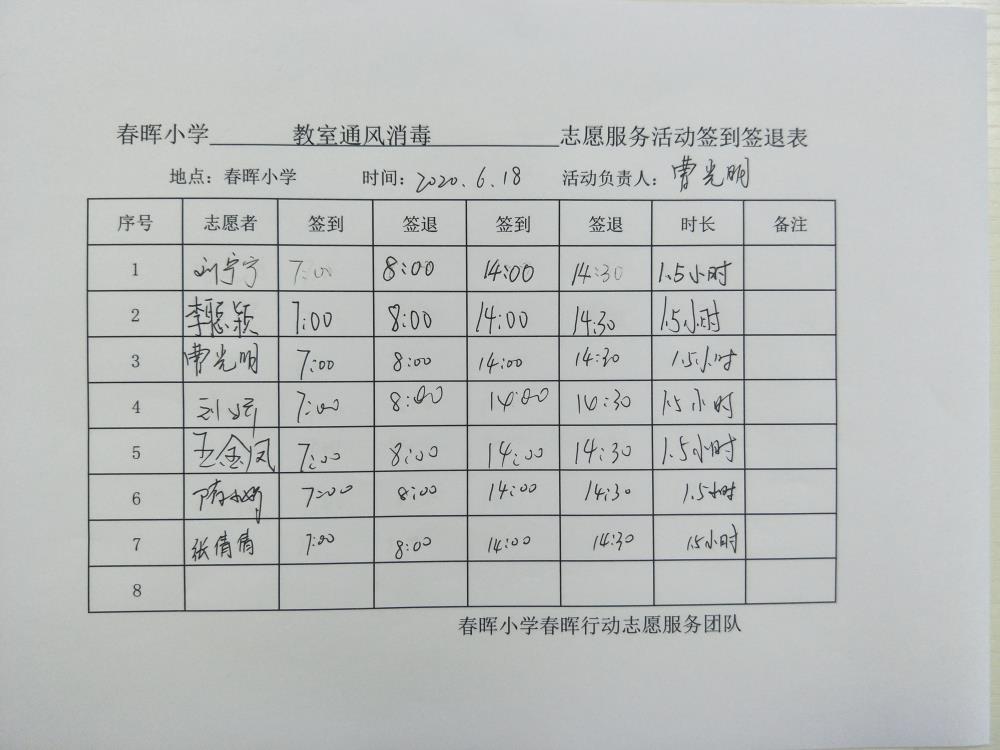 春晖小学 教室通风消毒 志愿服务活动签到签退表
地点：春晖小学 时间：2020.6.18 活动负责人：曹光明
序号 志愿者 签到 签退 签到 签退 时长 备注
1 刘宁宁 7:00 8:00 14:00 14:30 1.5小时
2 李聪颖 7:00 8:00 14:00 14:30 1.5小时
3 曹光明 7:00 8:00 14:00 14:30 1.5小时
4 刘 7:00 8:00 14:00 14:30 1.5小时
5 王金凤 7:00 8:00 14:00 14:30 1.5小时
6 7:00 8:00 14:00 14:30 1.5小时
7 张倩倩 7:00 8:00 14:00 14:30 1.5小时
8
春晖小学春晖行动志愿服务团队